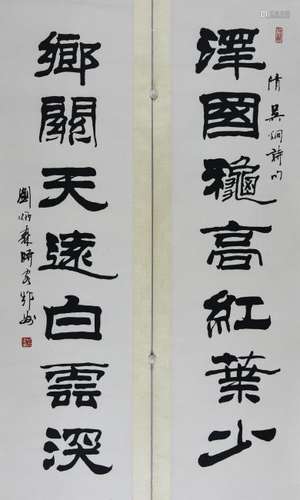 澤國龝高紅葉少
清吳炯詩句
鄉關天遠白雲深
劉炳森時客鄭州